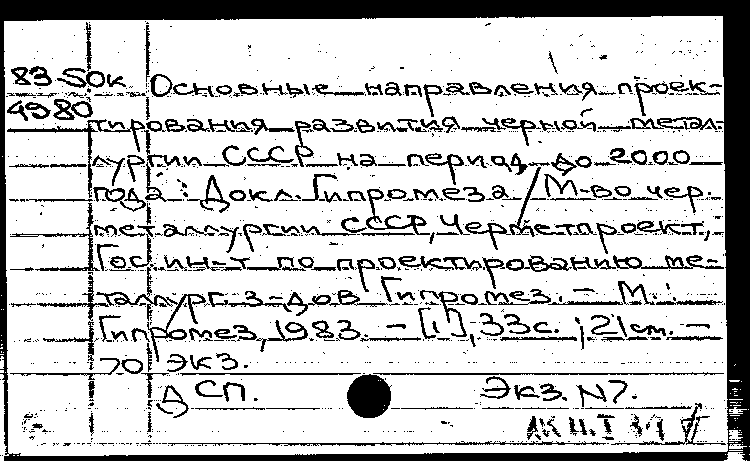 83-5Ок Основные направления проек-
4980 тирования развития черной метал-
лургии СССР на период до 2000
года : Докл. Гипромеза / М-во чер.
металлургии СССР, Черметпроект,
Гос. ин-т по проектированию ме-
таллург. з-дов Гипромез. – М. :
Гипромез, 1983. – [1], 33с. ; 21см. –
70 экз.
ДСП. Экз. N7.